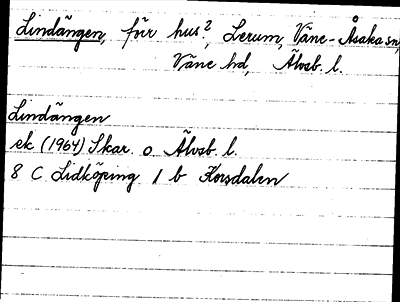 Lindängen, förr hus?, Lerum, Väne-Åsaka sn,
Väne hd, Älvsb. l.
Lindängen
ek (1964) Skar. o. Älvsb. l.
8 C Lidköping 1 b Korsdalen